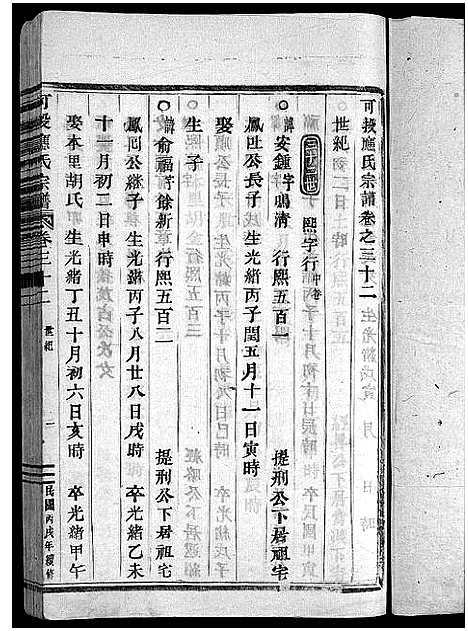 可投應氏宗譜卷之三十二
世紀
三十三世 熙字行 中卷
諱安鍾字鳴清 行熙五百一 提刑公下居祖宅
鳳四公長子 生光緒丙子閏五月十一日寅時
娶
生子
諱俞福字餘新 行熙五百二 提刑公下居祖宅
鳳四公繼子 生光緒丙子八月廿八日戌時 卒光緒乙未
十二月初二日申時
娶本里胡氏 生光緒丁丑十月初六日亥時 卒光緒甲午
可投應氏宗譜 卷三十二 世紀 一 民國丙戌年續修